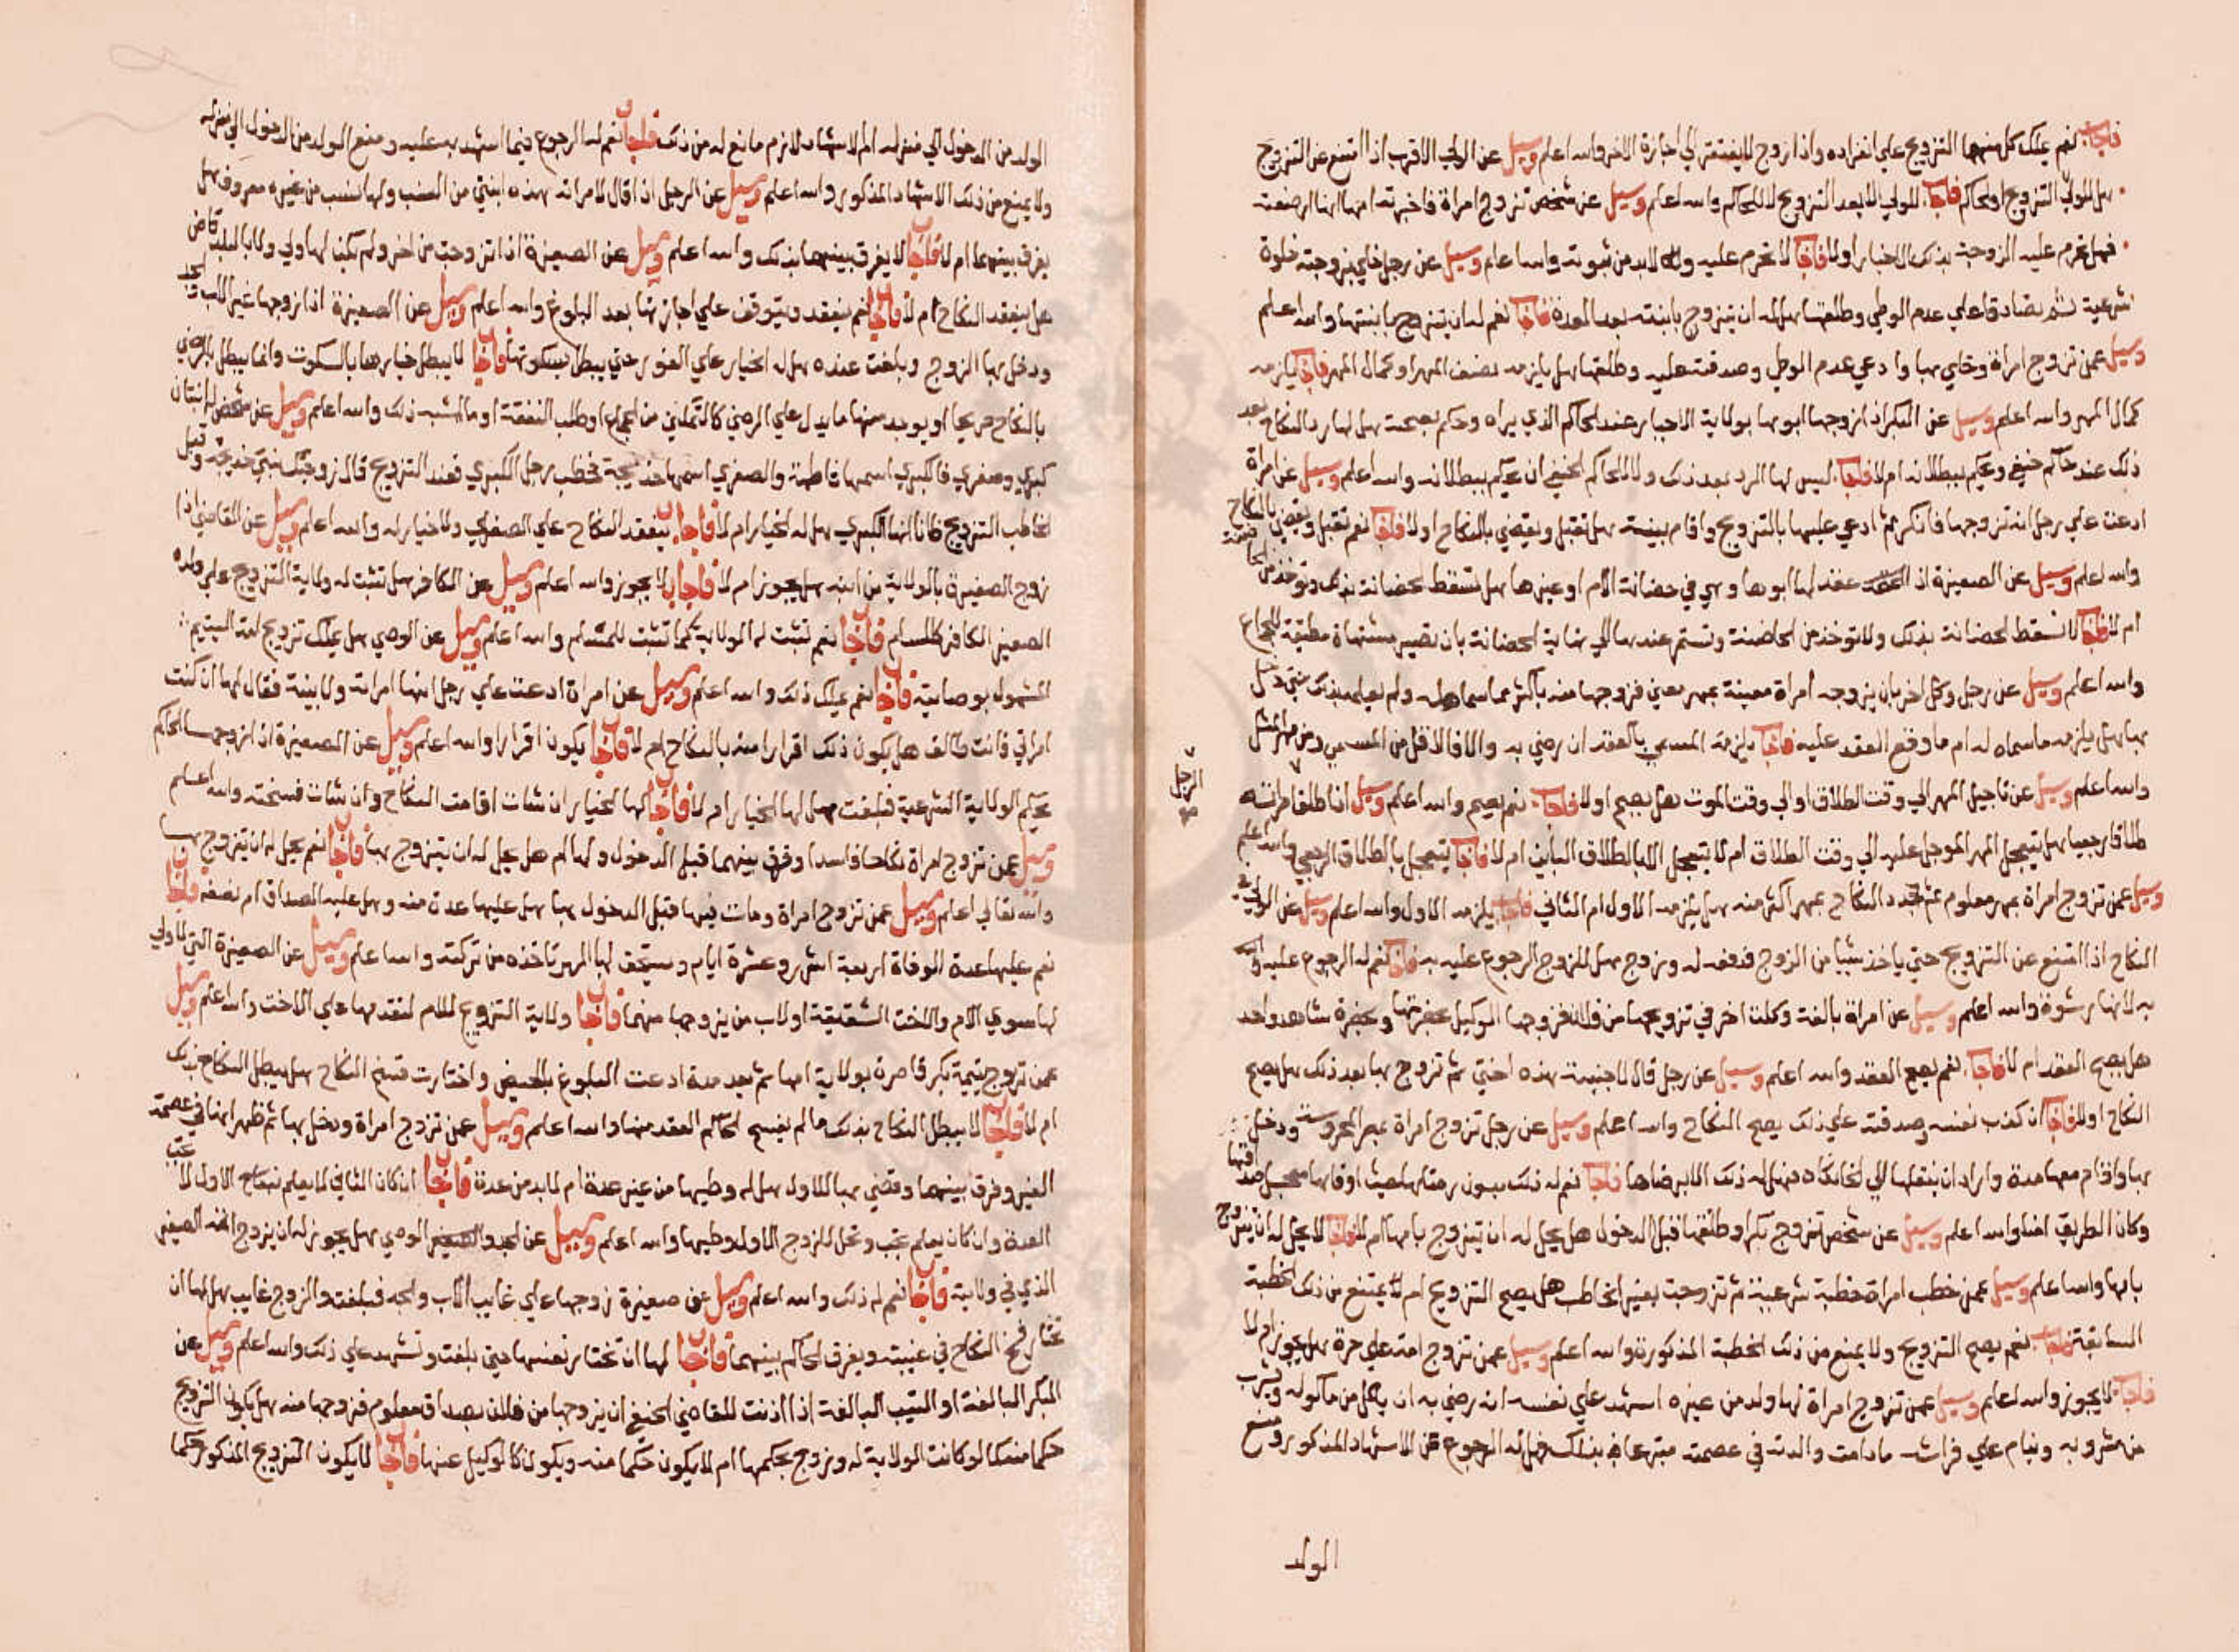 فاجاب نعم يملك كل منهما التزويج علي انفراده واذا زوج لا يفتقر الي اجازة الاخر والله اعلم وسيل عن الولي الاقرب اذا امتنع عن التزويج
هل للولي التزويج او للحاكم فاجاب للولي الابعد التزويج لا للحاكم والله اعلم وسيل عن شخص تزوج امراة فاخبرته امها انها ارضعته
فهل تحرم عليه الزوجة بذلك الاخبار اولا فاجاب لا تحرم عليه ولا بد من ثبوته والله اعلم وسيل عن رجل خلي بزوجته خلوة
شرعية ثم تصادقا علي عدم الوطي وطلقها هل له ان يتزوج بابنتها بعد العدة فاجاب نعم له ان يتزوج بابنتها والله اعلم
وسيل عمن تزوج امراة وخلي بها وادعي عدم الوطي وصدقته عليه وطلقها هل يلزمه نصف المهر او كمال المهر فاجاب يلزمه
كمال المهر والله اعلم وسيل عن البكر اذا زوجها ابوها بولاية الاجبار عند الحاكم الذي يراه وحكم بصحته هل لها رد النكاح بعد
ذلك عند حاكم حنفي ويحكم ببطلانه ام لا فاجاب ليس لها الرد بعد ذلك ولا للحاكم الحنفي ان يحكم ببطلانه والله اعلم وسيل عن امراة
ادعت علي رجل انه تزوجها فانكر ثم ادعي عليها بالتزويج واقام بينة هل تقبل ويقضي بالنكاح اولا فاجاب نعم تقبل ويقضي بالنكاح
والله اعلم وسيل عن الصغيرة اذا عقد لها ابوها وهي في حضانة الام او غيرها هل تسقط الحضانة بذلك وتوخذ من الحاضنة
ام لا فاجاب لا تسقط الحضانة بذلك ولا توخذ من الحاضنة وتستمر عندها الي نهاية الحضانة بان تصير مشتهاة مطيقة للجماع
والله اعلم وسيل عن رجل وكل اخر بان يزوجه امراة معينة بمهر معين فزوجها منه باكثر مما سماه له ولم يعلم بذلك حتي دخل
بها هل يلزمه ما سماه له ام ما وقع العقد عليه فاجاب يلزمه المسمي بالعقد ان رضي به والا فالاقل من المسمي ومن مهر المثل
والله اعلم وسيل عن تاجيل المهر الي وقت الطلاق او الي وقت الموت هل يصح اولا فاجاب نعم يصح والله اعلم وسيل اذا طلق امراته
الرجل
طلاقا رجعيا هل يتعجل المهر الموجل عليه الي وقت الطلاق ام لا يتعجل الا بالطلاق الباين ام لا فاجاب يتعجل بالطلاق الرجعي والله اعلم
وسيل عمن تزوج امراة بمهر معلوم ثم جدد النكاح بمهر اكثر منه هل يلزمه الاول ام الثاني فاجاب يلزمه الاول والله اعلم وسيل عن الولي في
النكاح اذا امتنع عن التزويج حتي ياخذ شيا من الزوج فدفعه له وتزوج هل للزوج الرجوع عليه به فاجاب نعم له الرجوع عليه
به لانها رشوة والله اعلم وسيل عن امراة بالغة وكلت اخر في تزويجها من فلان فزوجها الوكيل بحضرتها وبحضرة شاهد واحد
هل يصح العقد ام لا فاجاب نعم يصح العقد والله اعلم وسيل عن رجل قال لاجنبية هذه اختي ثم تزوج بها بعد ذلك هل يصح
النكاح اولا فاجاب ان كذب نفسه وصدقته علي ذلك يصح النكاح والله اعلم وسيل عن رجل تزوج امراة بمصر المحروسة ودخل
بها واقام معها مدة واراد ان ينقلها الي الخانكاه فهل له ذلك الا برضاها فاجاب نعم له ذلك بدون رضاها حيث اوفاها معجل صداقها
وكان الطريق امنا والله اعلم وسيل عن شخص تزوج بكرا وطلقها قبل الدخول هل يحل له ان يتزوج بامها ام لا فاجاب لا يحل له ان يتزوج
بامها والله اعلم وسيل عمن خطب امراة خطبة شرعية ثم تزوجت بغير الخاطب هل يصح التزويج ام لا يمتنع من ذلك الخطبة
السابقة فاجاب نعم يصح التزويج ولا يمنع من ذلك الخطبة المذكورة والله اعلم وسيل عمن تزوج امة علي حرة هل يجوز ام لا
فاجاب لا يجوز والله اعلم وسيل عمن تزوج امراة لها ولد من غيره اشهد علي نفسه انه رضي به ان ياكل من ماكوله ويشرب
من مشروبه وينام علي فراشه ما دامت والدته في عصمته متبرعا بذلك فهل له الرجوع عن الاشهاد المذكور ومنع
الولد
الولد من الدخول الي منزله ام الاشهاد لازم مانع له من ذلك فاجاب نعم له الرجوع فيما اشهد به عليه ومنع الولد من الدخول الي منزله
ولا يمنع من ذلك الاشهاد المذكور والله اعلم وسيل عن الرجل اذا قال لامراته هذه ابنتي من النسب ولها نسب من غيره معروف هل
يفرق بينهما ام لا فاجاب لا يفرق بينهما بذلك والله اعلم وسيل عن الصغيرة اذا تزوجت من اخر ولم يكن لها ولي ولا بالبلد قاض
هل ينعقد النكاح ام لا فاجاب نعم ينعقد ويتوقف علي اجازتها بعد البلوغ والله اعلم وسيل عن الصغيرة اذا زوجها غير الاب والجد
ودخل بها الزوج وبلغت عنده هل له الخيار علي الفور حتي يبطل بسكوتها فاجاب لا يبطل خيارها بالسكوت وانما يبطل بالرضي
بالنكاح صريحا او يوجد منها ما يدل علي الرضي كالتمكين من الجماع او طلب النفقة او ما اشبه ذلك والله اعلم وسيل عن شخص له ابنتان
كبري وصغري فالكبري اسمها فاطمة والصغري اسمها خديجة فخطب رجل الكبري فعند التزويج قال زوجتك بنتي خديجة وقبل
الخاطب التزويج ظانا انها الكبري هل له الخيار ام لا فاجاب ينعقد النكاح علي الصغري ولا خيار له والله اعلم وسيل عن القاضي اذا
زوج الصغيرة بالولاية من ابنه هل يجوز ام لا فاجاب لا يجوز والله اعلم وسيل عن الكافر هل تثبت له ولاية التزويج علي ولده
الصغير الكافر كالمسلم فاجاب نعم تثبت له الولاية كما تثبت للمسلم والله اعلم وسيل عن الوصي هل يملك تزويج امة اليتيم
المشمول بوصايته فاجاب نعم يملك ذلك والله اعلم وسيل عن امراة ادعت علي رجل انها امراته ولا بينة فقال لها ان كنت
امراتي فانت طالق هل يكون ذلك اقرارا منه بالنكاح ام لا فاجاب يكون اقرارا والله اعلم وسيل عن الصغيرة اذا زوجها الحاكم
بحكم الولاية الشرعية فبلغت هل لها الخيار ام لا فاجاب لها الخيار ان شات اقامت النكاح وان شات فسخته والله اعلم
وسيل عمن تزوج امراة نكاحا فاسدا وفرق بينهما قبل الدخول ولها ام هل يحل له ان يتزوج بها فاجاب نعم يحل له ان يتزوج بها
والله تعالي اعلم وسيل عمن تزوج امراة ومات عنها قبل الدخول بها هل عليها عدة منه وهل عليه الصداق ام نصفه فاجاب
نعم عليها عدة الوفاة اربعة اشهر وعشرة ايام ويستحق لها المهر تاخذه من تركته والله اعلم وسيل عن الصغيرة التي لا ولي
لها سوي الام والاخت الشقيقة او لاب من يزوجها منهما فاجاب ولاية التزويج للام لتقدمها علي الاخت والله اعلم وسيل
عمن تزوج يتيمة بكر قاصرة بولاية امها ثم بعد مدة ادعت البلوغ بالحيض واختارت فسخ النكاح هل يبطل النكاح بذلك
ام لا فاجاب لا يبطل النكاح بذلك ما لم يفسخ الحاكم العقد منهما والله اعلم وسيل عمن تزوج امراة ودخل بها ثم ظهر انها في عصمة
الغير وفرق بينهما وقضي بها للاول هل له وطيها من غير عدة ام لا بد من عدة فاجاب ان كان الثاني لا يعلم نكاح الاول لا تجب
العدة وان كان يعلم تجب وتحل للزوج الاول وطيها والله اعلم وسيل عن الجد الوصي هل يجوز له ان يزوج ابنة الصغير
الذي في ولايته فاجاب نعم له ذلك والله اعلم وسيل عن صغيرة زوجها علي غايب الاب والجد فبلغت والزوج غايب هل لها ان
تختار فسخ النكاح في غيبته ويفرق الحاكم بينهما فاجاب لها ان تختار نفسها حتي بلغت وتشهد علي ذلك والله اعلم وسيل عن
البكر البالغة او الثيب البالغة اذا اذنت للقاضي الحنفي ان يزوجها من فلان بصداق معلوم فزوجها منه هل يكون التزويج
حكما منه كما لو كانت الولاية له وتزوج بحكمها ام لا يكون حكما منه ويكون كالوكيل عنها فاجاب لا يكون التزويج المذكور حكما